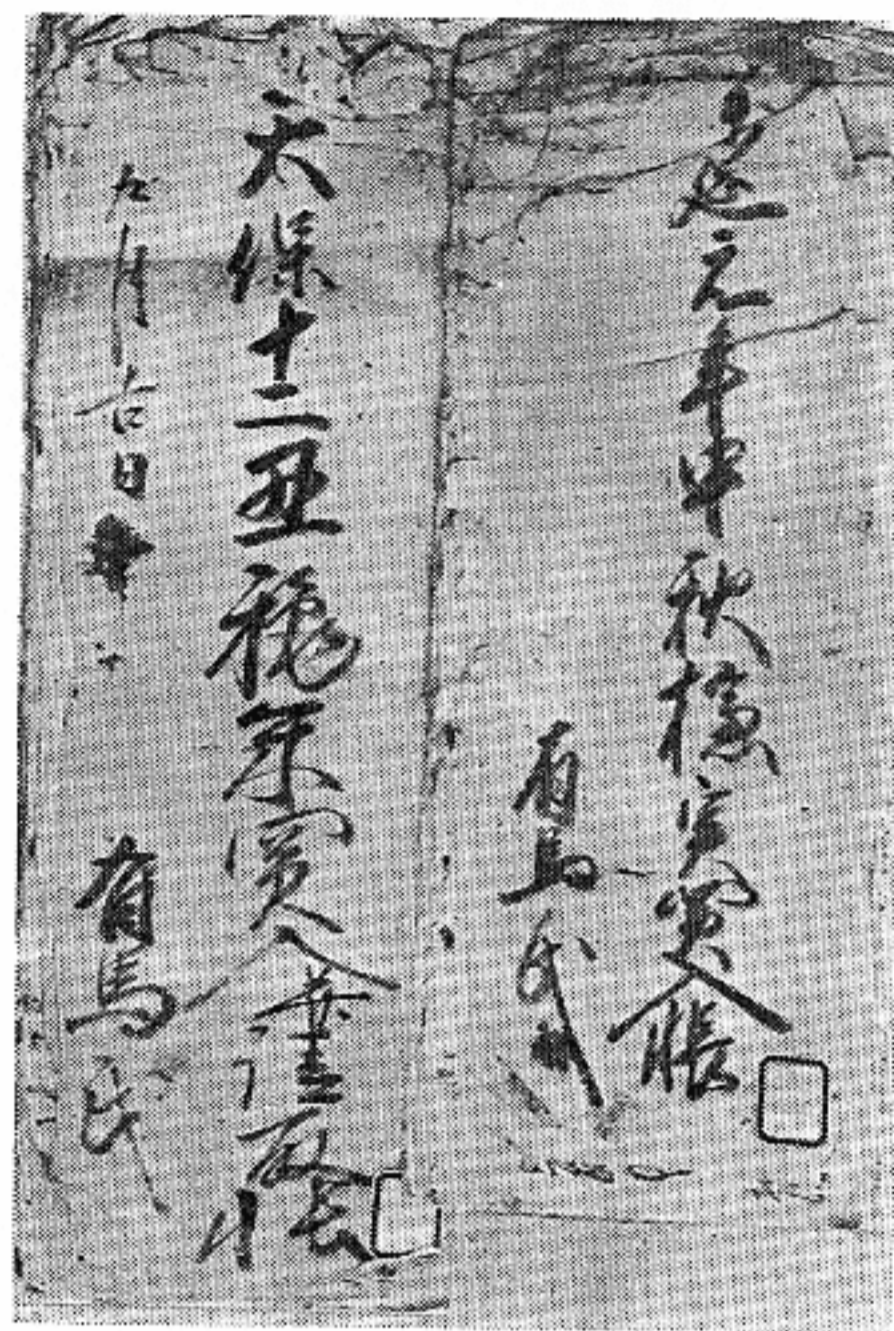 万延元年申秋櫨実買入帳
有馬氏
天保十二丑穐買入取帳
九月吉日
有馬氏